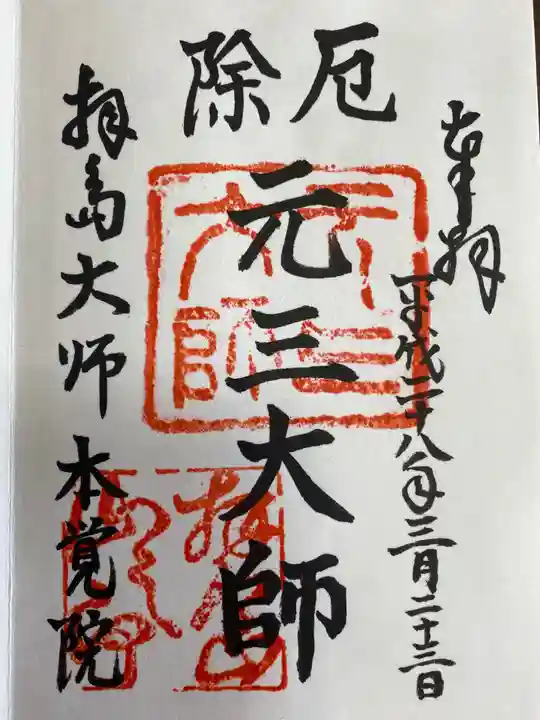 奉拝
平成二十八年三月二十三日
厄除
元三大師
拝島大師
本覚院